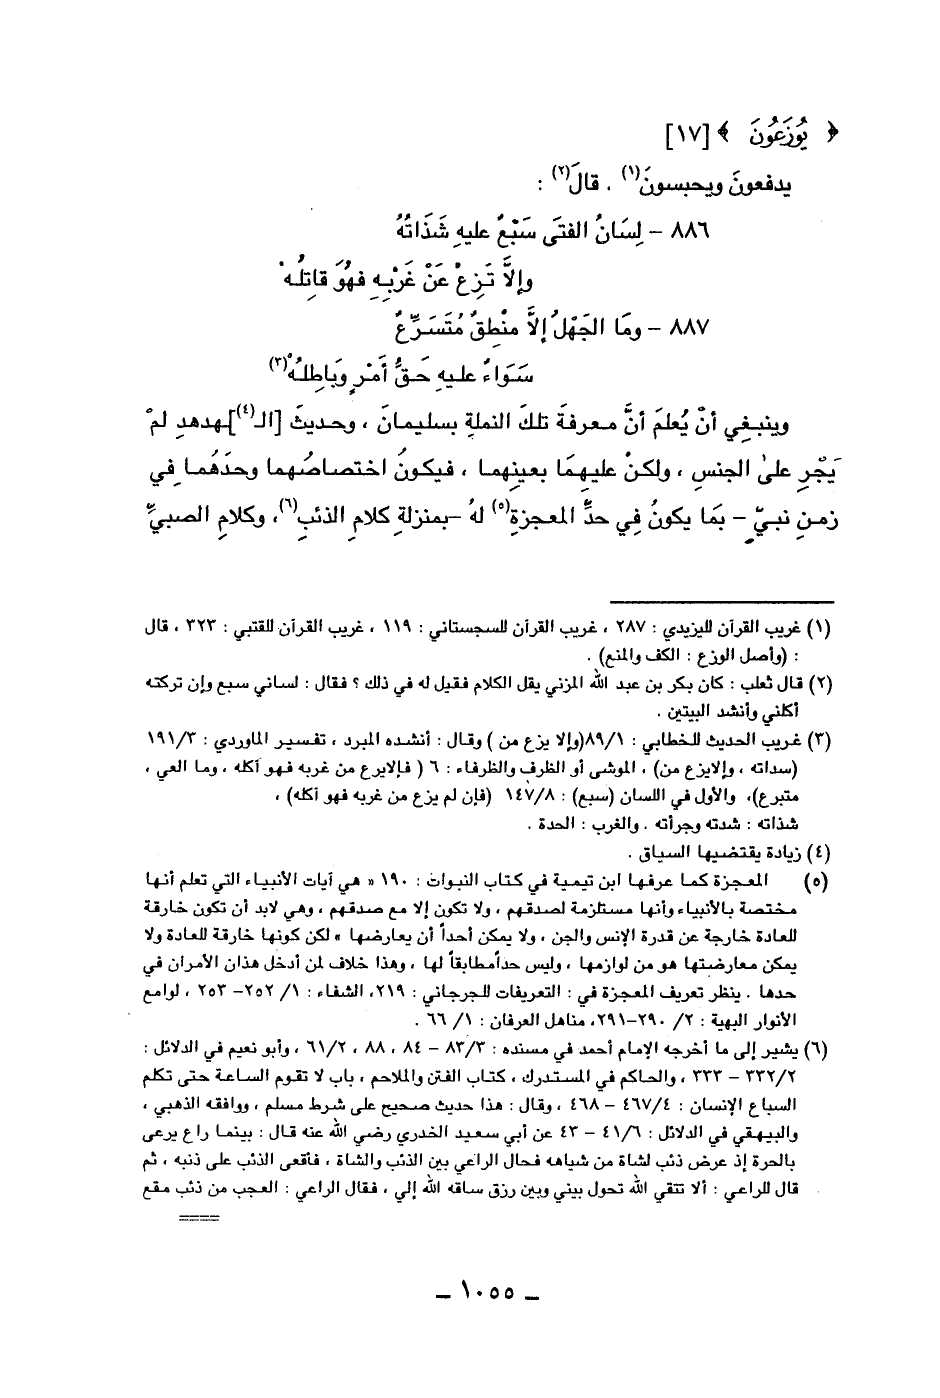 ﴿ يُوزَعُونَ ﴾ [١٧]
يدفعونَ ويحبسونَ(١) . قالَ(٢) :
٨٨٦ – لِسَانُ الفتَى سَبْعٌ عليهِ شَذَاتُهُ
وإلاَّ تَزِعْ عَنْ غَرْبِهِ فهُوَ قاتِلُهْ
٨٨٧ – ومَا الجَهْلُ إلاَّ منْطِقٌ مُتَسَرِّعٌ
سَوَاءٌ عليهِ حَقُّ أمْرٍ وبَاطِلُهْ(٣)
وينبغِي أنْ يُعلَمَ أنَّ معرفةَ تلكَ النملةِ بسليمانَ ، وحديثَ [الـ(٤)]ـهدهدِ لمْ
يَجْرِ علىٰ الجنسِ ، ولكنْ عليهِمَا بعينِهما ، فيكونُ اختصاصُهما وحدَهُمَا فِي
زمنِ نبيٍّ – بمَا يكونُ فِي حدِّ المعجزةِ(٥) لهُ –بمنزلةِ كلامِ الذئبِ(٦)، وكلامِ الصبيِّ
(١) غريب القرآن لليزيدي : ٢٨٧ ، غريب القرآن للسجستاني : ١١٩ ، غريب القرآن للقتبي : ٣٢٣ ، قال
: (وأصل الوزع : الكف والمنع) .
(٢) قال ثعلب : كان بكر بن عبد الله المزني يقل الكلام فقيل له في ذلك ؟ فقال : لساني سبع وإن تركته
أكلني وأنشد البيتين .
(٣) غريب الحديث للخطابي : ٨٩/١(وإلا يزع من ) وقال : أنشده المبرد ، تفسير الماوردي : ١٩١/٣
(سداته ، وإلايزع من) ، الموشى أو الظرف والظرفاء : ٦ ( فإلايرع من غربه فهو آكله ، وما العي ،
متبرع)، والأول في اللسان (سبع) : ١٤٧/٨ (فإن لم يزع من غربه فهو آكله) ،
شذاته : شدته وجرأته . والغرب : الحدة .
(٤) زيادة يقتضيها السياق .
(٥) المعجزة كما عرفها ابن تيمية في كتاب النبوات : ١٩٠ « هي آيات الأنبياء التي تعلم أنها
مختصة بالأنبياء وأنها مستلزمة لصدقهم ، ولا تكون إلا مع صدقهم ، وهي لابد أن تكون خارقة
للعادة خارجة عن قدرة الإنس والجن ، ولا يمكن أحداً أن يعارضها » لكن كونها خارقة للعادة ولا
يمكن معارضتها هو من لوازمها ، وليس حدأمطابقاً لها ، وهذا خلاف لمن أدخل هذان الأمران في
حدها . ينظر تعريف المعجزة في : التعريفات للجرجاني : ٢١٩، الشفاء : ١/ ٢٥٢– ٢٥٣ ، لوامع
الأنوار البهية : ٢/ ٢٩٠–٢٩١، مناهل العرفان : ١/ ٦٦ .
(٦) يشير إلى ما أخرجه الإمام أحمد في مسنده : ٨٣/٣ – ٨٤ ، ٨٨ ، ٦١/٢ ، وأبو نعيم في الدلائل :
٣٣٢/٢ – ٣٣٣ ، والحاكم في المستدرك ، كتاب الفتن والملاحم ، باب لا تقوم الساعة حتى تكلم
السباع الإنسان : ٤٦٧/٤ – ٤٦٨ ، وقال : هذا حديث صحيح على شرط مسلم ، ووافقه الذهبي ،
والبيهقي في الدلائل : ٤١/٦ – ٤٣ عن أبي سعيد الخدري رضي الله عنه قال : بينما راع يرعى
بالحرة إذ عرض ذئب لشاة من شياهه فحال الراعي بين الذئب والشاة ، فأقعى الذئب على ذنبه ، ثم
قال للراعي : ألا تتقي الله تحول بيني وبين رزق ساقه الله إلي ، فقال الراعي : العجب من ذئب مقع
====
– ١٠٥٥ –